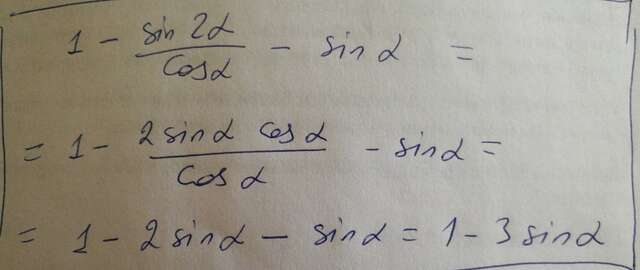 1 - sin 2α / cos α - sin α =
= 1 - 2 sin α cos α / cos α - sin α =
= 1 - 2 sin α - sin α = 1 - 3 sin α